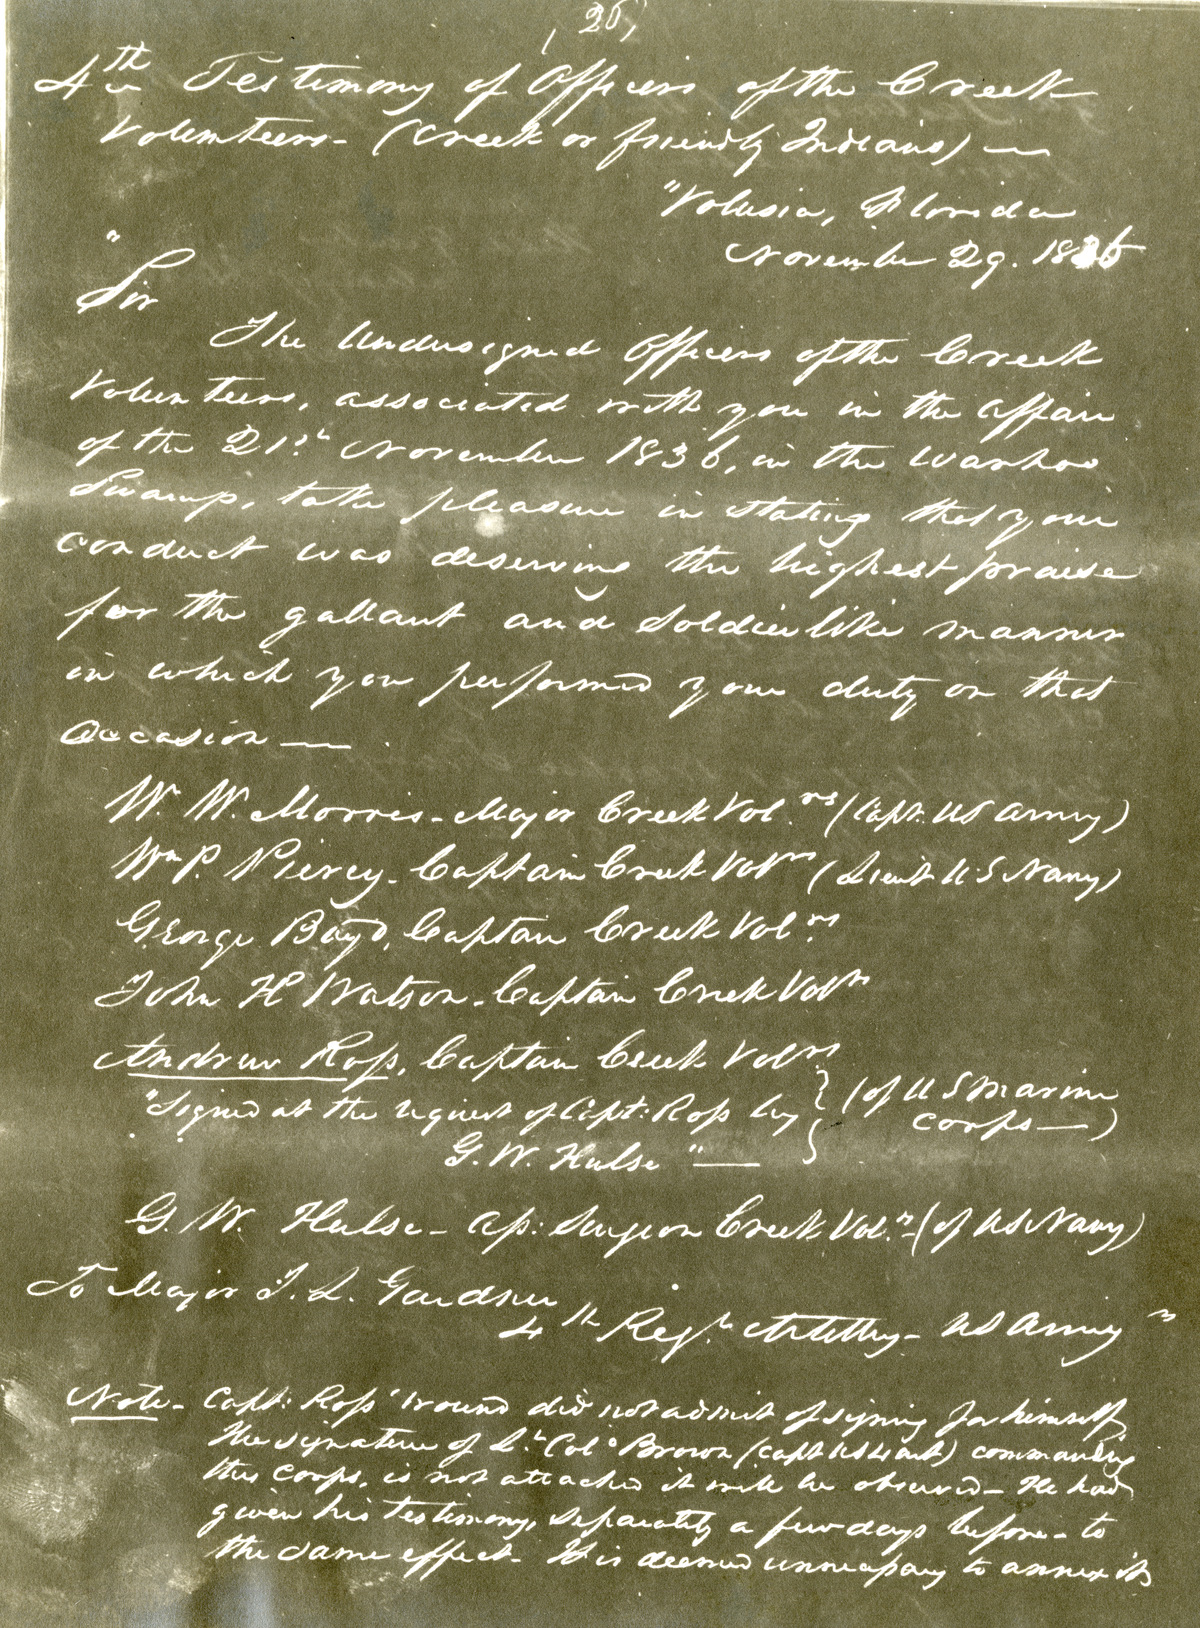 (26)
4th Testimony of Officers of the Creek
Volunteers - (Creek or friendly Indians) —
"Volusia, Florida
November 29. 1836
"Sir
The Undersigned Officers of the Creek
Volunteers, associated with you in the affair
of the 21st November 1836, in the Wahoo
Swamp, take pleasure in stating that your
conduct was deserving the highest praise
for the gallant and Soldierlike manner
in which you performed your duty on that
Occasion —
W. W. Morris - Major Creek Vol.rs (Capt. US Army)
Wm P. Piercy - Captain Creek Volrs (Lieut U S Navy)
George Boyd, Captain Creek Vol.rs
John H Watson - Captain Creek Volrs
Andrew Ross, Captain Creek Volrs
"Signed at the request of Capt: Ross by } (of U S Marine
Corps —)
G. W. Hulse" —
G. W. Hulse - As: Surgeon Creek Vol.rs - (of US Navy)
To Major J. L. Gardner
4th Regt. Artillery - US Army"
Note - Capt: Ross' wound did not admit of signing for himself
The signature of Lt. Colo Brown (Capt US 4 art) commanding
this Corps, is not attached it will be observed - He had
given his testimony, separately a few days before - to
the same effect - It is deemed unnecessary to annex it